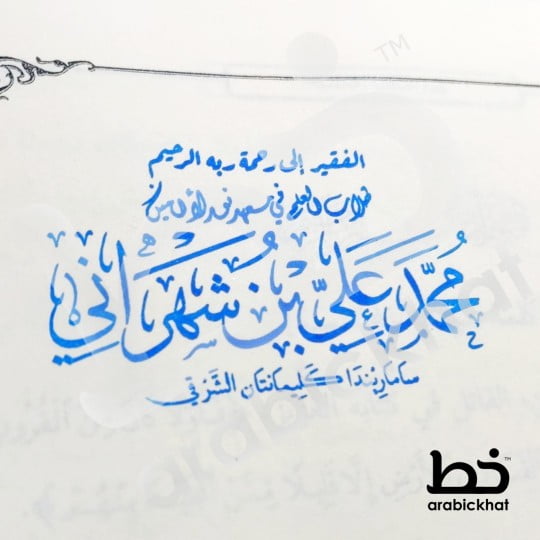 الفقير إلى رحمة ربه الرحيم
طلاب العلم في معهد نور الأمين
مُحَمَّد عَلِيّ بْن شُهَرَانِي
سامارِيندا كَلِيمانتان الشَّرْقِي
خط
TM
arabickhat